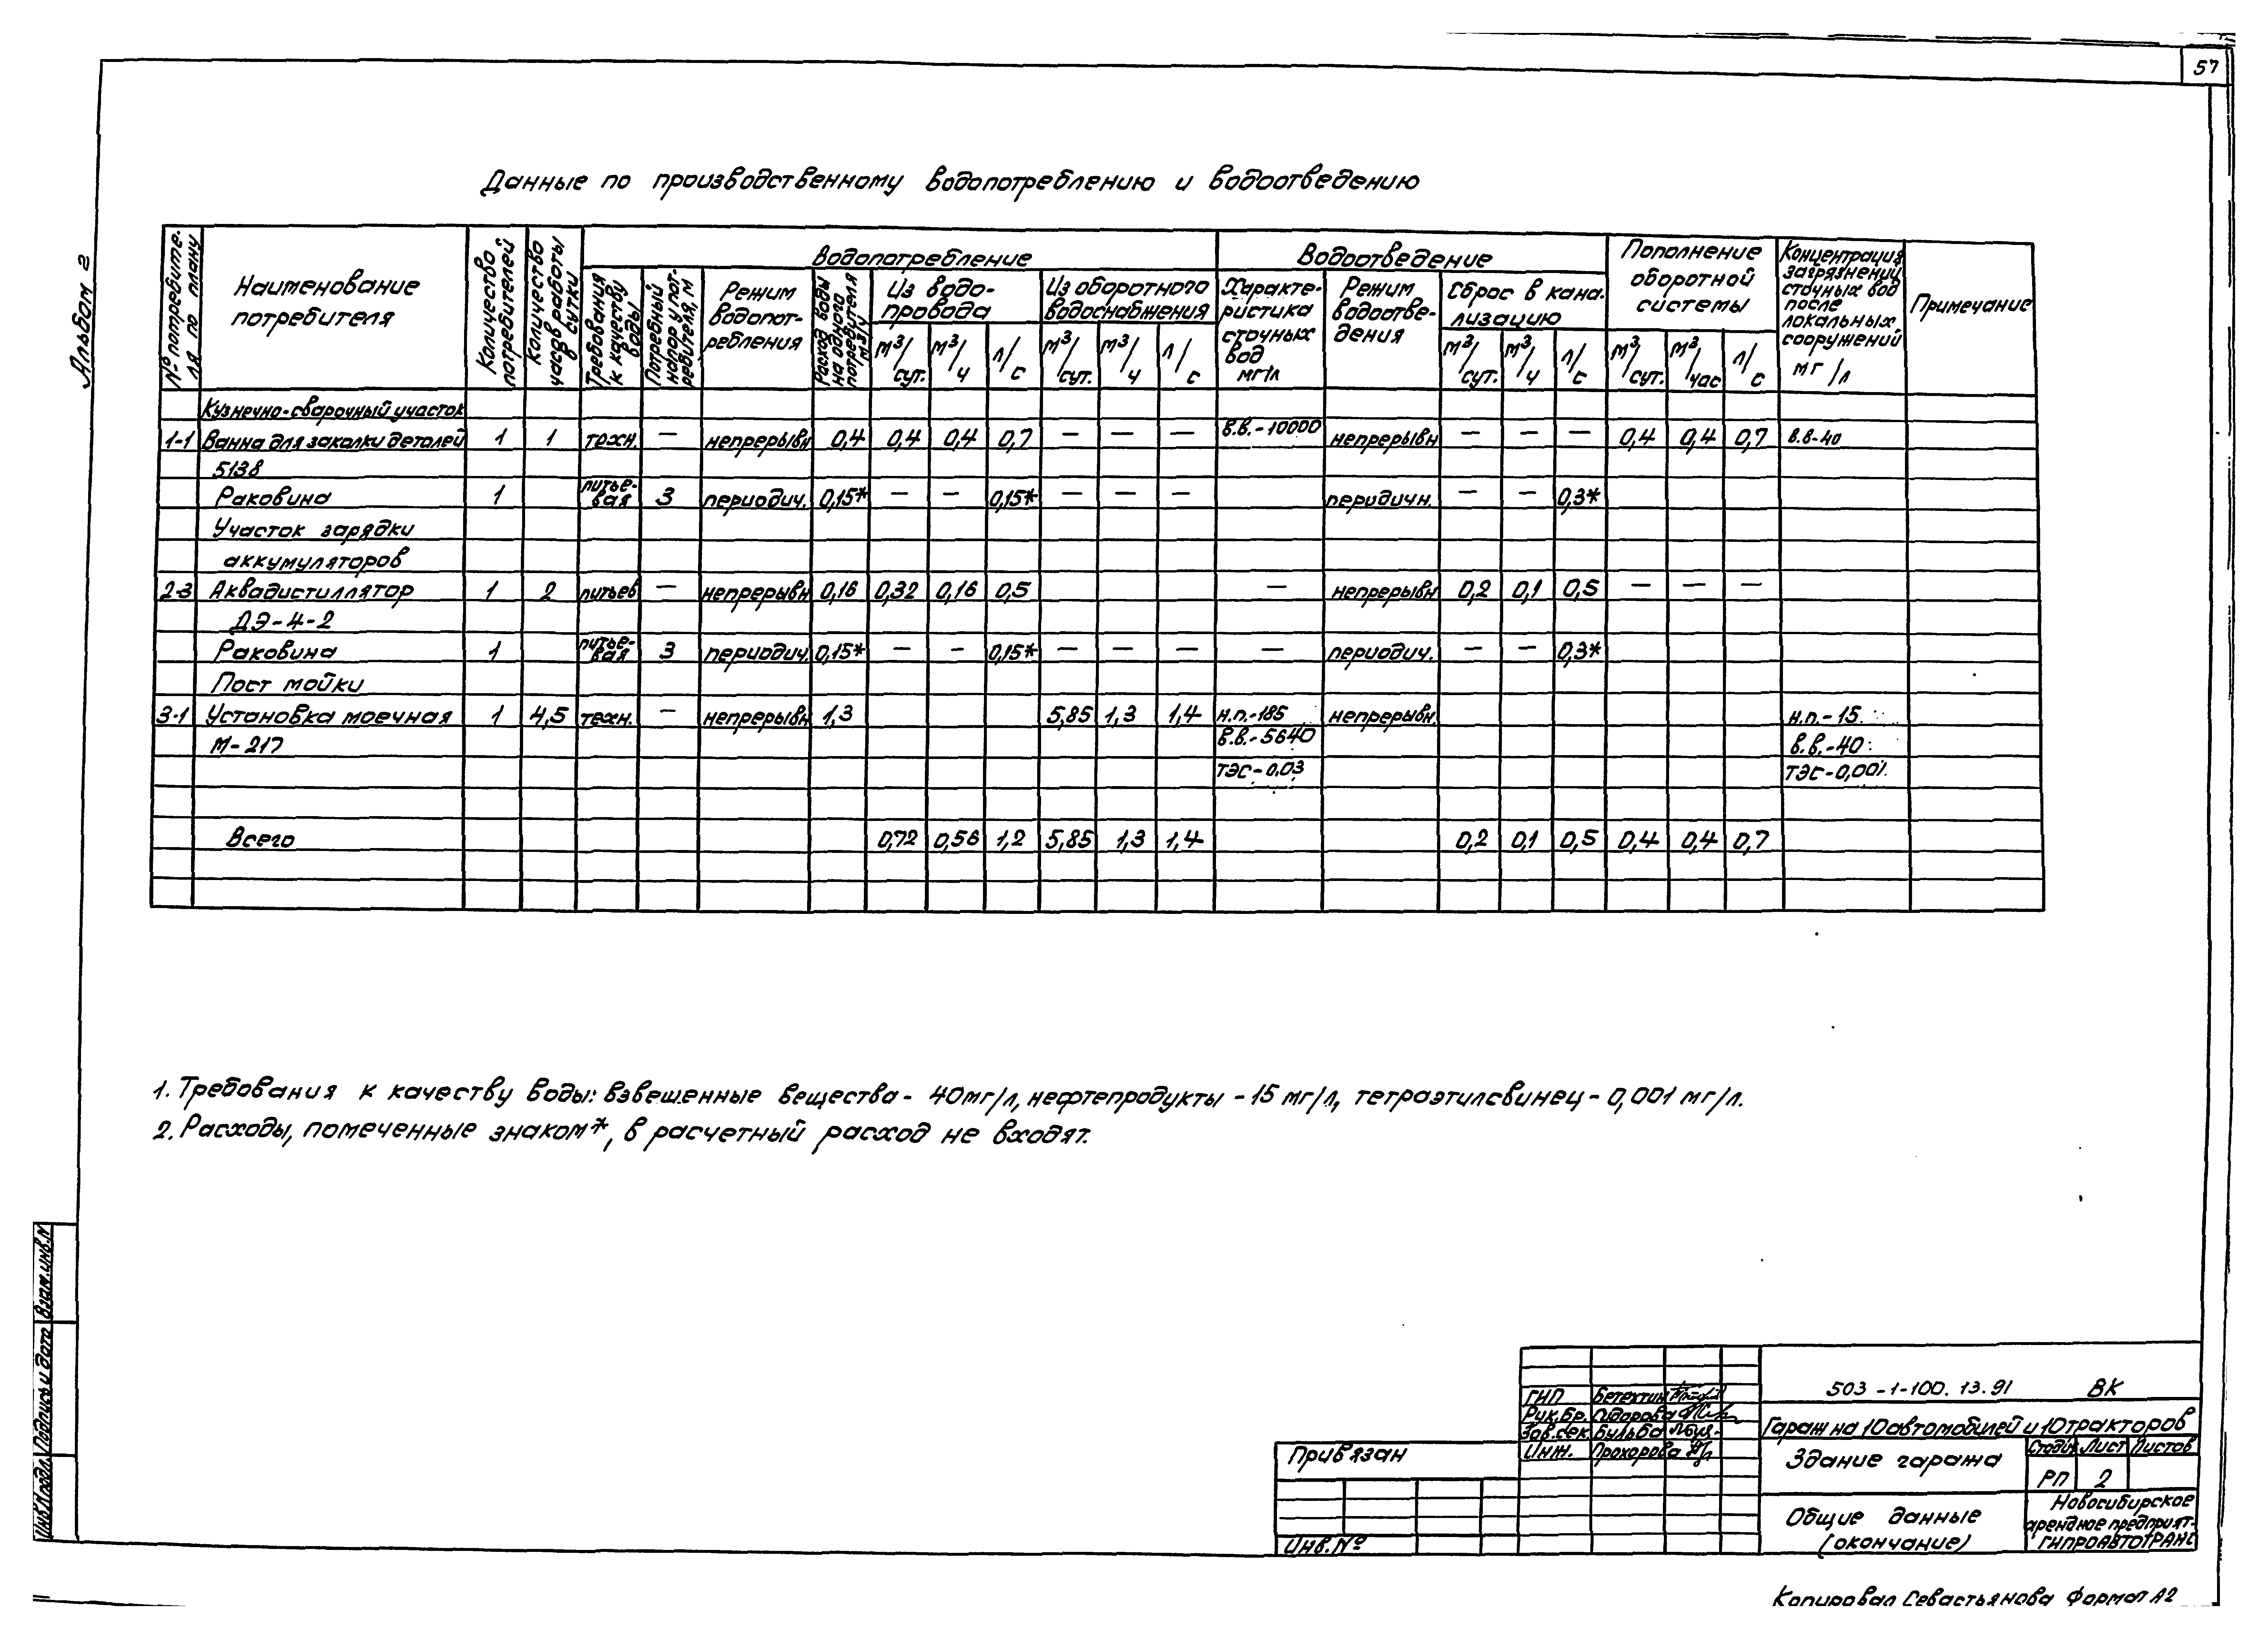 57
Альбом 2
Данные по производственному водопотреблению и водоотведению
№ потребите-
ля по плану
Наименование
потребителя
Количество
потребителей
Количество
часов работы
в сутки
Водопотребление
Требования
к качеству
воды
Потребный
напор у пот-
ребителя, м
Режим
водопот-
ребления
Расход воды
на одного
потребителя
м3/ч
Из водо-
провода
м3/сут. м3/ч л/с
Из оборотного
водоснабжения
м3/сут. м3/ч л/с
Водоотведение
Характе-
ристика
сточных
вод
мг/л
Режим
водоотве-
дения
Сброс в кана-
лизацию
м3/сут. м3/ч л/с
Пополнение
оборотной
системы
м3/сут. м3/час л/с
Концентрация
загрязнений
сточных вод
после
локальных
сооружений
мг/л
Примечание
Кузнечно-сварочный участок
1-1 Ванна для закалки деталей 1 1 техн. — непрерывн 0,4 0,4 0,4 0,7 — — — в.в.-10000 непрерывн — — — 0,4 0,4 0,7 в.в-40
5138
Раковина 1 питье-вая 3 периодич. 0,15* — — 0,15* — — — периодичн. — — 0,3*
Участок зарядки
аккумуляторов
2-3 Аквадистиллятор 1 2 питьев — непрерывн 0,16 0,32 0,16 0,5 — непрерывн 0,2 0,1 0,5 — — —
ДЭ-4-2
Раковина 1 питье-вая 3 периодич. 0,15* — — 0,15* — — — — периодич. — — 0,3*
Пост мойки
3-1 Установка моечная 1 4,5 техн. — непрерывн 1,3 5,85 1,3 1,4 н.п.-185 непрерывн. н.п.-15
М-217 в.в.-5640 в.в.-40
ТЭС-0,03 ТЭС-0,001
Всего 0,72 0,56 1,2 5,85 1,3 1,4 0,2 0,1 0,5 0,4 0,4 0,7
1. Требования к качеству воды: взвешенные вещества - 40мг/л, нефтепродукты - 15 мг/л, тетраэтилсвинец - 0,001 мг/л.
2. Расходы, помеченные знаком*, в расчетный расход не входят.
Взам.инв.N
Подпись и дата
Инв.N подл.
Привязан
Инв.№
ГИП Бетехтин
Рук.бр. Сидорова
Зав.сек Бульба
Инж. Прохорова
503-1-100.13.91 ВК
Гараж на 10 автомобилей и 10 тракторов
Здание гаража
Стадия Лист Листов
РП 2
Общие данные
(окончание)
Новосибирское
арендное предприят-
ГИПРОАВТОТРАНС
Копировал Севастьянова Формат А2